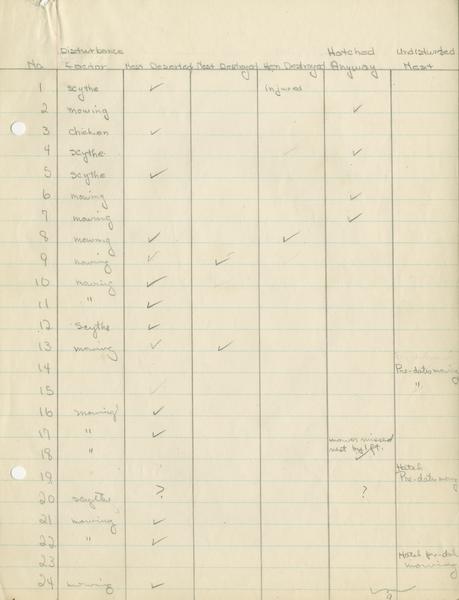 Disturbance Hatched Undisturbed
No. Factor Nest Deserted Nest Destroyed Hen Destroyed Anyway Nest
1 scythe ✓ injured
2 mowing ✓
3 chicken ✓
4 scythe ✓
5 scythe ✓
6 mowing ✓
7 mowing ✓
8 mowing ✓ ✓
9 mowing ✓ ✓
10 mowing ✓
11 " ✓
12 Scythe ✓
13 mowing ✓ ✓
14 Pre-dates mowing
15 "
16 mowing ✓
17 " ✓ mower missed
18 " nest by 1 ft. ✓
19 Hatch Pre-dates mowing
20 scythe ? ?
21 mowing ✓
22 " ✓
23 Hatch pre-date mowing
24 mowing ✓